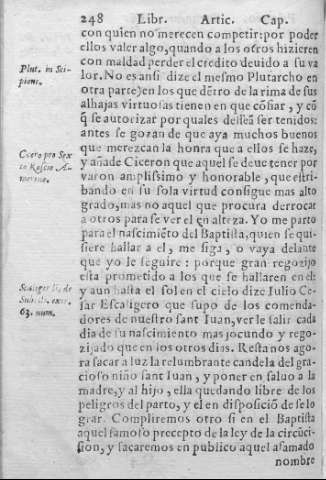 248 Libr. Artic. Cap.
con quien no merecen competir: por poder
ellos valer algo, quando a los otros hizieren
con maldad perder el credito deuido a su va
Plut. in Sci-
pione.
lor. No es ansi dize el mesmo Plutarcho en
otra parte) en los que dētro de la rima de sus
alhajas virtuosas tienen en que cōfiar, y cō
q̄ se autorizar por quales dessēa ser tenidos:
antes se gozan de que aya muchos buenos
que merezcan la honra que a ellos se haze,
Cicero pro Sex
to Roscio A-
merino.
y añade Ciceron que aquel se deue tener por
varon amplissimo y honorable, que estri-
bando en su sola virtud consigue mas alto
grado, mas no aquel que procura derrocar
a otros para se ver el en alteza. Yo me parto
para el nascimiēto del Baptista, quien se qui-
siere hallar a el, me siga, o vaya delante
que yo le seguire: porque gran regozijo
esta prometido a los que se hallaren en el:
Scaliger li. de
Subt. exer.
63. num.
y aun hasta el sol en el cielo dize Iulio Ce-
sar Escaligero que supo de los comenda-
dores de nuestro sant Iuan, ver le salir cada
dia de su nascimiento mas jocundo y rego-
zijado que en los otros dias. Resta nos ago-
ra sacar a luz la relumbrante candela del gra-
cioso niño sant Iuan, y poner en saluo a la
madre, y al hijo, ella quedando libre de los
peligros del parto, y el en disposiciō de se lo
grar. Compliremos otro si en el Baptista
aquel famoso precepto de la ley de la circūci-
sion, y sacaremos en publico aquel afamado
nombre